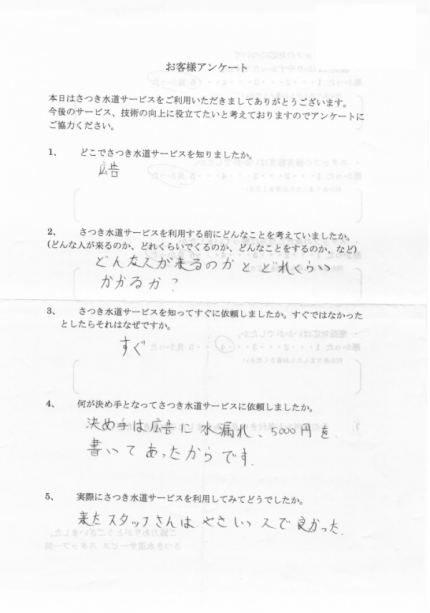 お客様アンケート
本日はさつき水道サービスをご利用いただきましてありがとうございます。
今後のサービス、技術の向上に役立てたいと考えておりますのでアンケートに
ご協力ください。
1、 どこでさつき水道サービスを知りましたか。
広告
2、 さつき水道サービスを利用する前にどんなことを考えていましたか。
(どんな人が来るのか、どれくらいでくるのか、どんなことをするのか、など)
どんな人が来るのかと どれくらい
かかるか?
3、 さつき水道サービスを知ってすぐに依頼しましたか。すぐではなかった
としたらそれはなぜですか。
すぐ
4、 何が決め手となってさつき水道サービスに依頼しましたか。
決め手は広告に水漏れ、5000円を
書いてあったからです.
5、 実際にさつき水道サービスを利用してみてどうでしたか。
来たスタッフさんは やさしい人で良かった.